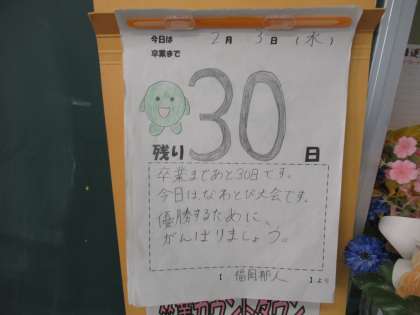 今日は 2月 3日 (水)
卒業まで
30
残り 日
卒業まであと30日です。
今日はなわとび大会です。
優勝するために、
がんばりましょう。
【 福岡郁人 】より
カウントダウン